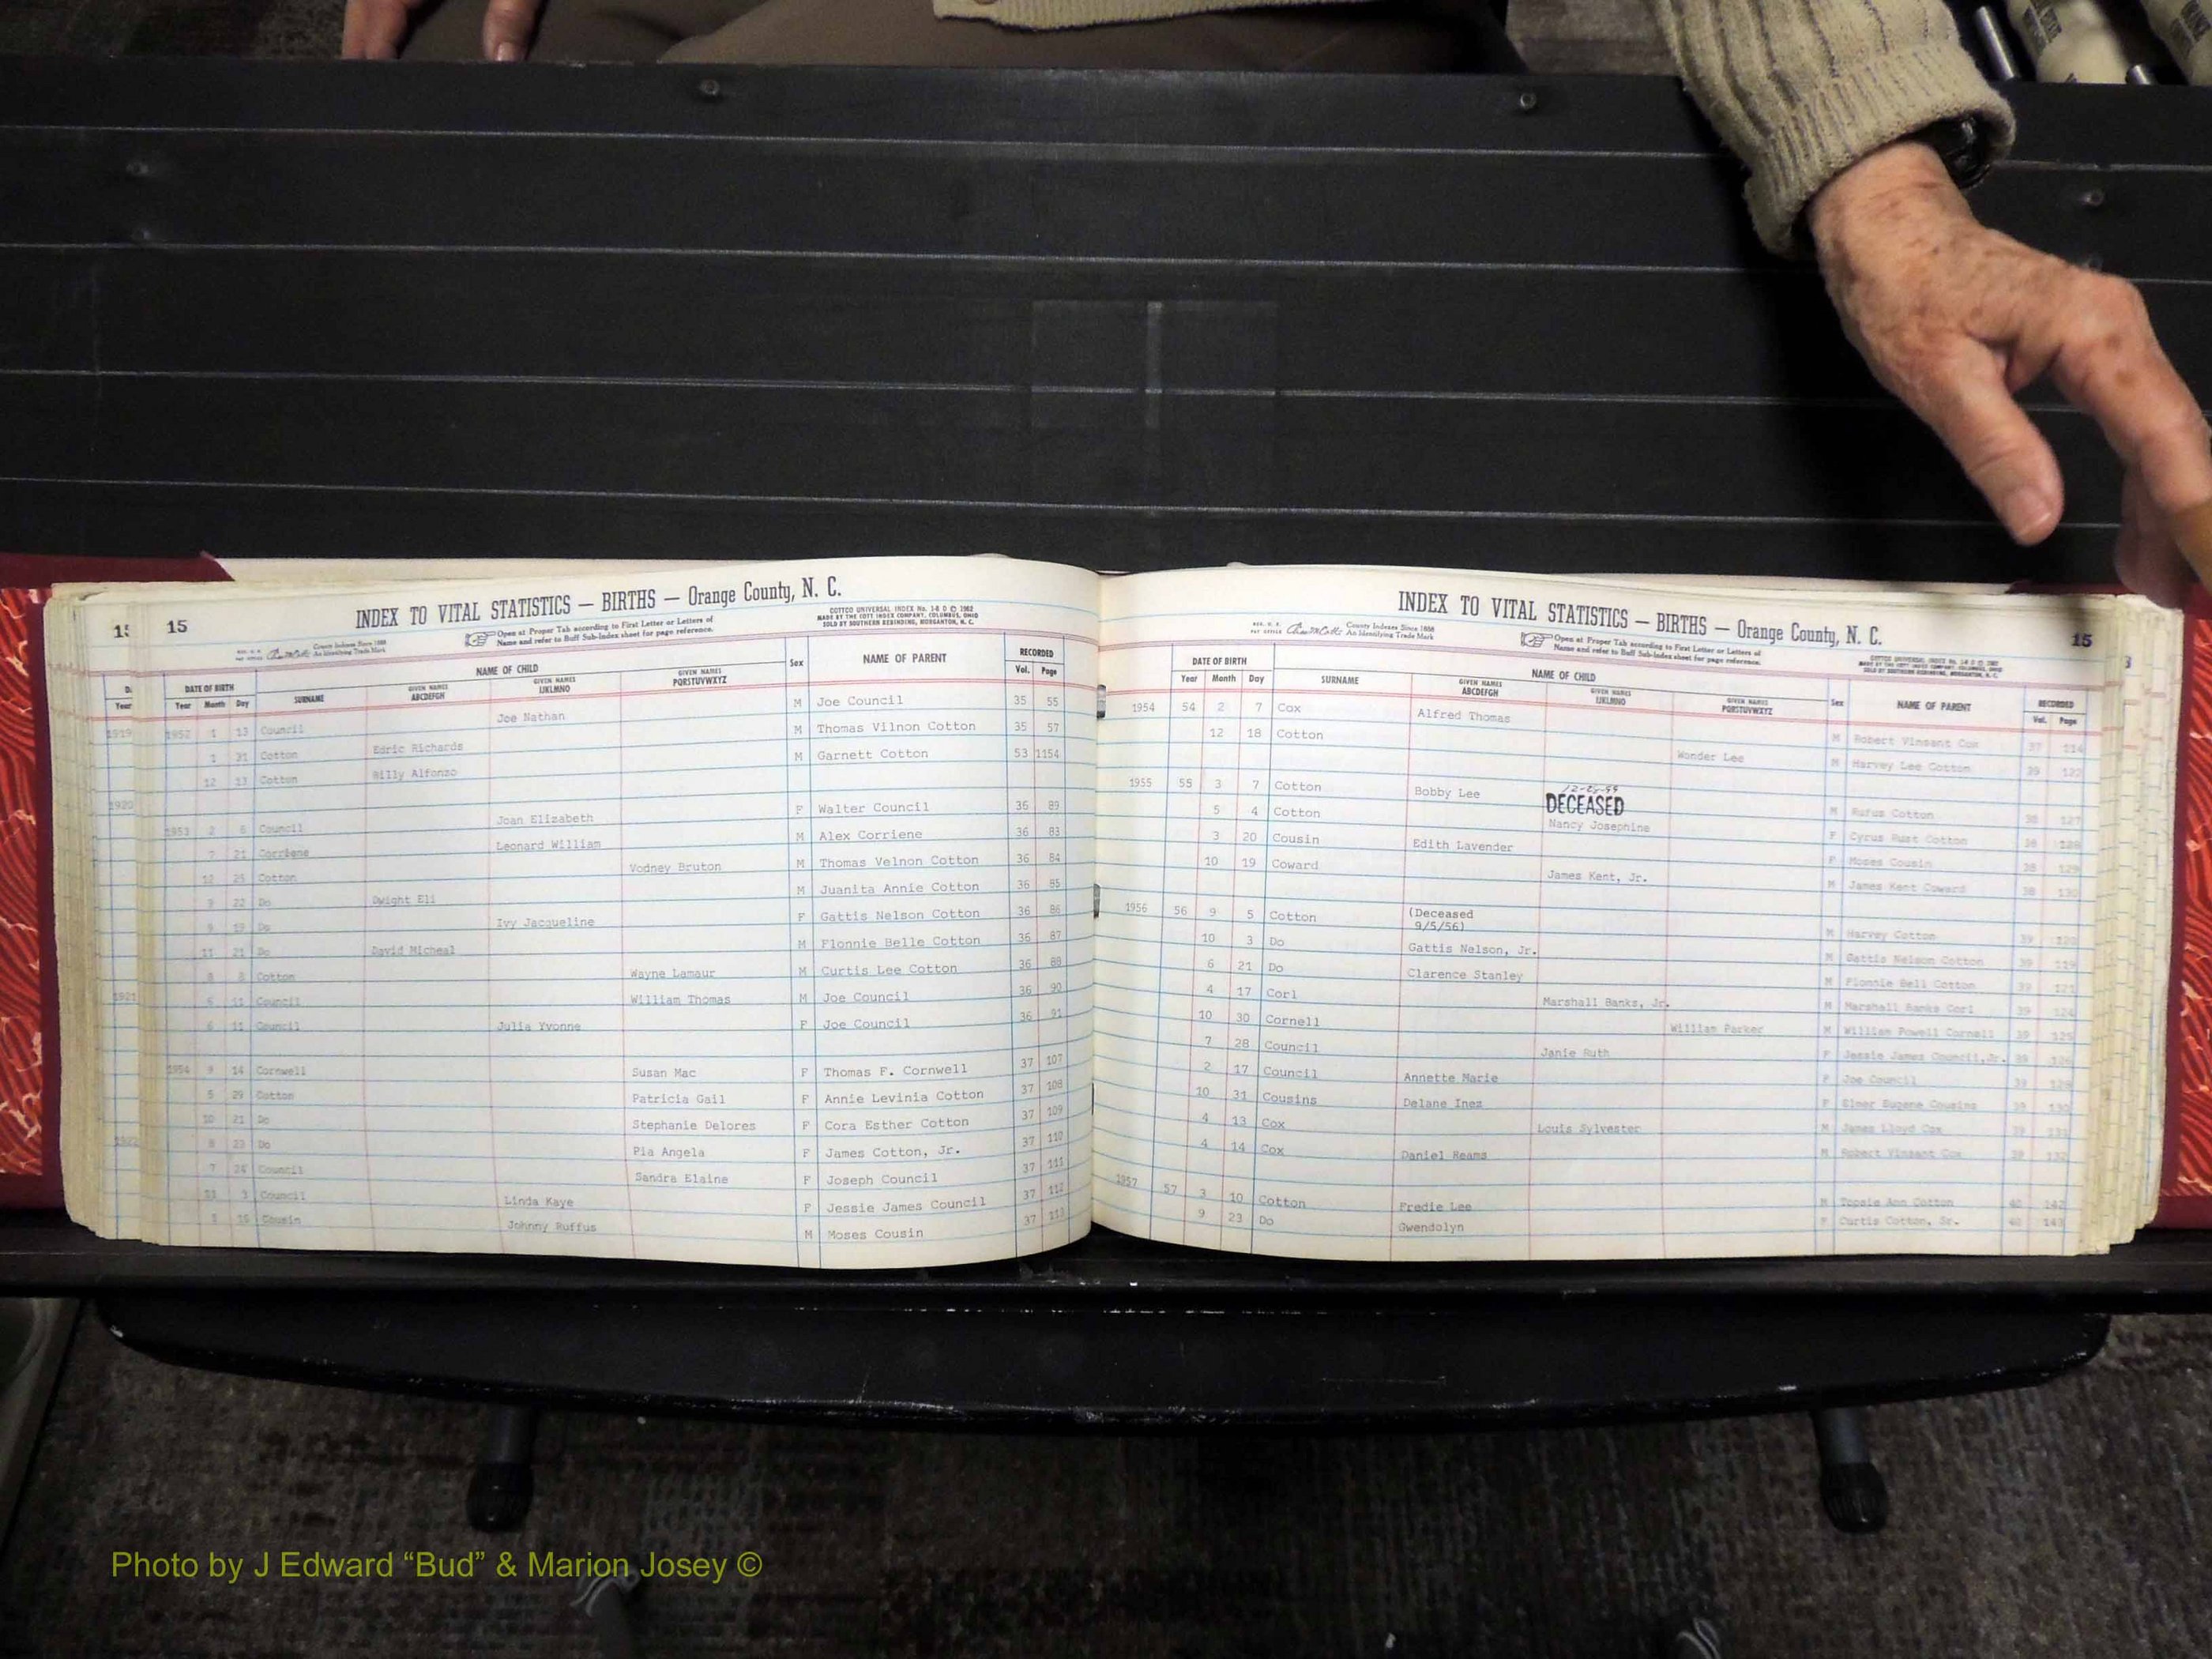 INDEX TO VITAL STATISTICS — BIRTHS — Orange County, N. C.
15 15
County Indexes Since 1888
An Identifying Trade Mark
Open at Proper Tab according to First Letter or Letters of
Name and refer to Buff Sub-Index sheet for page reference.
COTTCO UNIVERSAL INDEX No. 1-8 D © 1962
MADE BY THE COTT INDEX COMPANY, COLUMBUS, OHIO
SOLD BY SOUTHERN REBINDING, MORGANTON, N. C.
DATE OF BIRTH NAME OF CHILD Sex NAME OF PARENT RECORDED
Year Month Day SURNAME GIVEN NAMES ABCDEFGH GIVEN NAMES IJKLMNO GIVEN NAMES PQRSTUVWXYZ Vol. Page
1952 1 13 Council Joe Nathan M Joe Council 35 55
1 31 Cotton Edric Richards M Thomas Vilnon Cotton 35 57
12 13 Cotton Billy Alfonzo M Garnett Cotton 53 1154
1953 2 6 Council Joan Elizabeth F Walter Council 36 89
7 21 Corriene Leonard William M Alex Corriene 36 83
12 25 Cotton Vodney Bruton M Thomas Velnon Cotton 36 84
9 22 Do Dwight Eli M Juanita Annie Cotton 36 85
Do Ivy Jacqueline F Gattis Nelson Cotton 36 86
11 21 Do David Micheal M Flonnie Belle Cotton 36 87
8 8 Cotton Wayne Lamaur M Curtis Lee Cotton 36 88
11 Council William Thomas M Joe Council 36 90
11 Council Julia Yvonne F Joe Council 36 91
1954 9 14 Cornwell Susan Mac F Thomas F. Cornwell 37 107
5 29 Cotton Patricia Gail F Annie Levinia Cotton 37 108
10 21 Do Stephanie Delores F Cora Esther Cotton 37 109
8 23 Do Pia Angela F James Cotton, Jr. 37 110
7 Council Sandra Elaine F Joseph Council 37 111
3 Council Linda Kaye F Jessie James Council 37 112
Cousin Johnny Ruffus M Moses Cousin 37 113
INDEX TO VITAL STATISTICS — BIRTHS — Orange County, N. C.
15
County Indexes Since 1888
An Identifying Trade Mark
Open at Proper Tab according to First Letter or Letters of
Name and refer to Buff Sub-Index sheet for page reference.
DATE OF BIRTH NAME OF CHILD Sex NAME OF PARENT RECORDED
Year Month Day SURNAME GIVEN NAMES ABCDEFGH GIVEN NAMES IJKLMNO GIVEN NAMES PQRSTUVWXYZ Vol. Page
1954 54 2 7 Cox Alfred Thomas M Robert Vinsant Cox 37 114
12 18 Cotton Wonder Lee M Harvey Lee Cotton 39 122
1955 55 3 7 Cotton Bobby Lee M Rufus Cotton 38 127
DECEASED
5 4 Cotton Nancy Josephine F Cyrus Rust Cotton 38 128
3 20 Cousin Edith Lavender F Moses Cousin 38 129
10 19 Coward James Kent, Jr. M James Kent Coward 38 130
1956 56 9 5 Cotton (Deceased 9/5/56) M Harvey Cotton 39
10 3 Do Gattis Nelson, Jr. M Gattis Nelson Cotton 39 119
6 21 Do Clarence Stanley M Flonnie Bell Cotton 39 121
4 17 Corl Marshall Banks, Jr. M Marshall Banks Corl 39 124
10 30 Cornell William Parker M William Powell Cornell 39 125
7 28 Council Janie Ruth F Jessie James Council, Jr. 39 126
2 17 Council Annette Marie F Joe Council 39 128
10 31 Cousins Delane Inez F Elmer Eugene Cousins 39 130
4 13 Cox Louis Sylvester M James Lloyd Cox 39 131
4 14 Cox Daniel Reams M Robert Vinsant Cox 39 132
1957 57 3 10 Cotton Fredie Lee M Topsie Ann Cotton 40 142
9 23 Do Gwendolyn F Curtis Cotton, Sr. 40 143
Photo by J Edward “Bud” & Marion Josey ©